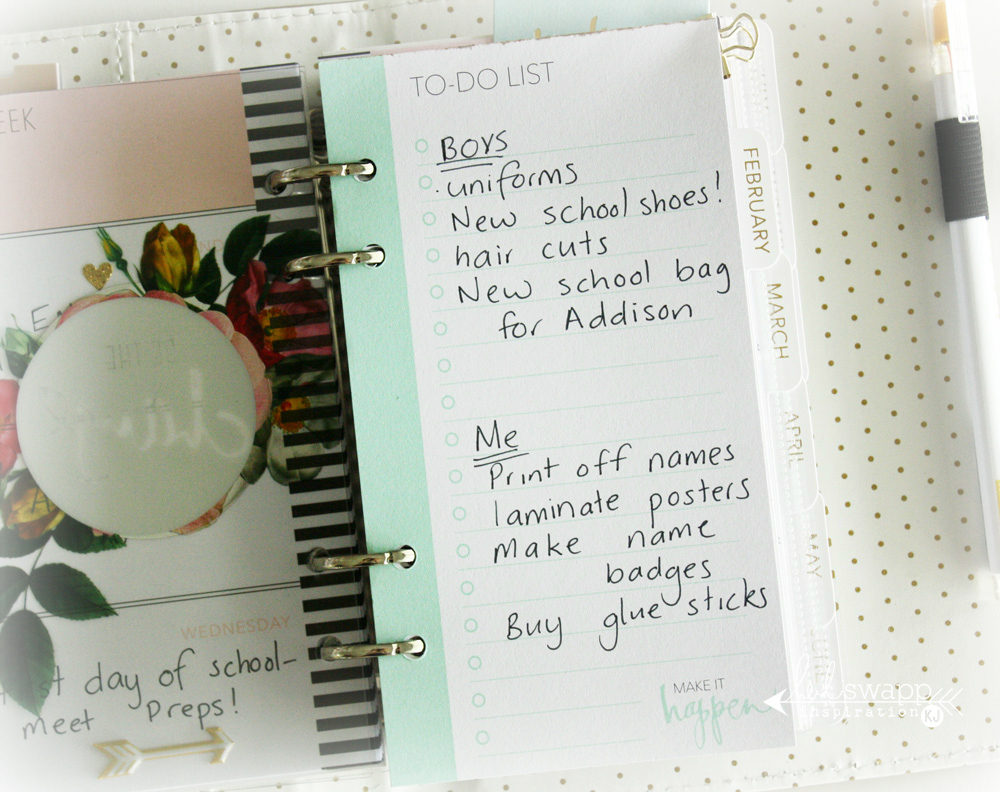 EEK
WEDNESDAY
day of school-
meet Preps!
TO-DO LIST
BOYS
uniforms
New school shoes!
hair cuts
New school bag
for Addison
Me
Print off names
laminate posters
make name
badges
Buy glue sticks
MAKE IT
happen
FEBRUARY
MARCH
APRIL
MAY
JUNE
swapp
inspiration
KJ